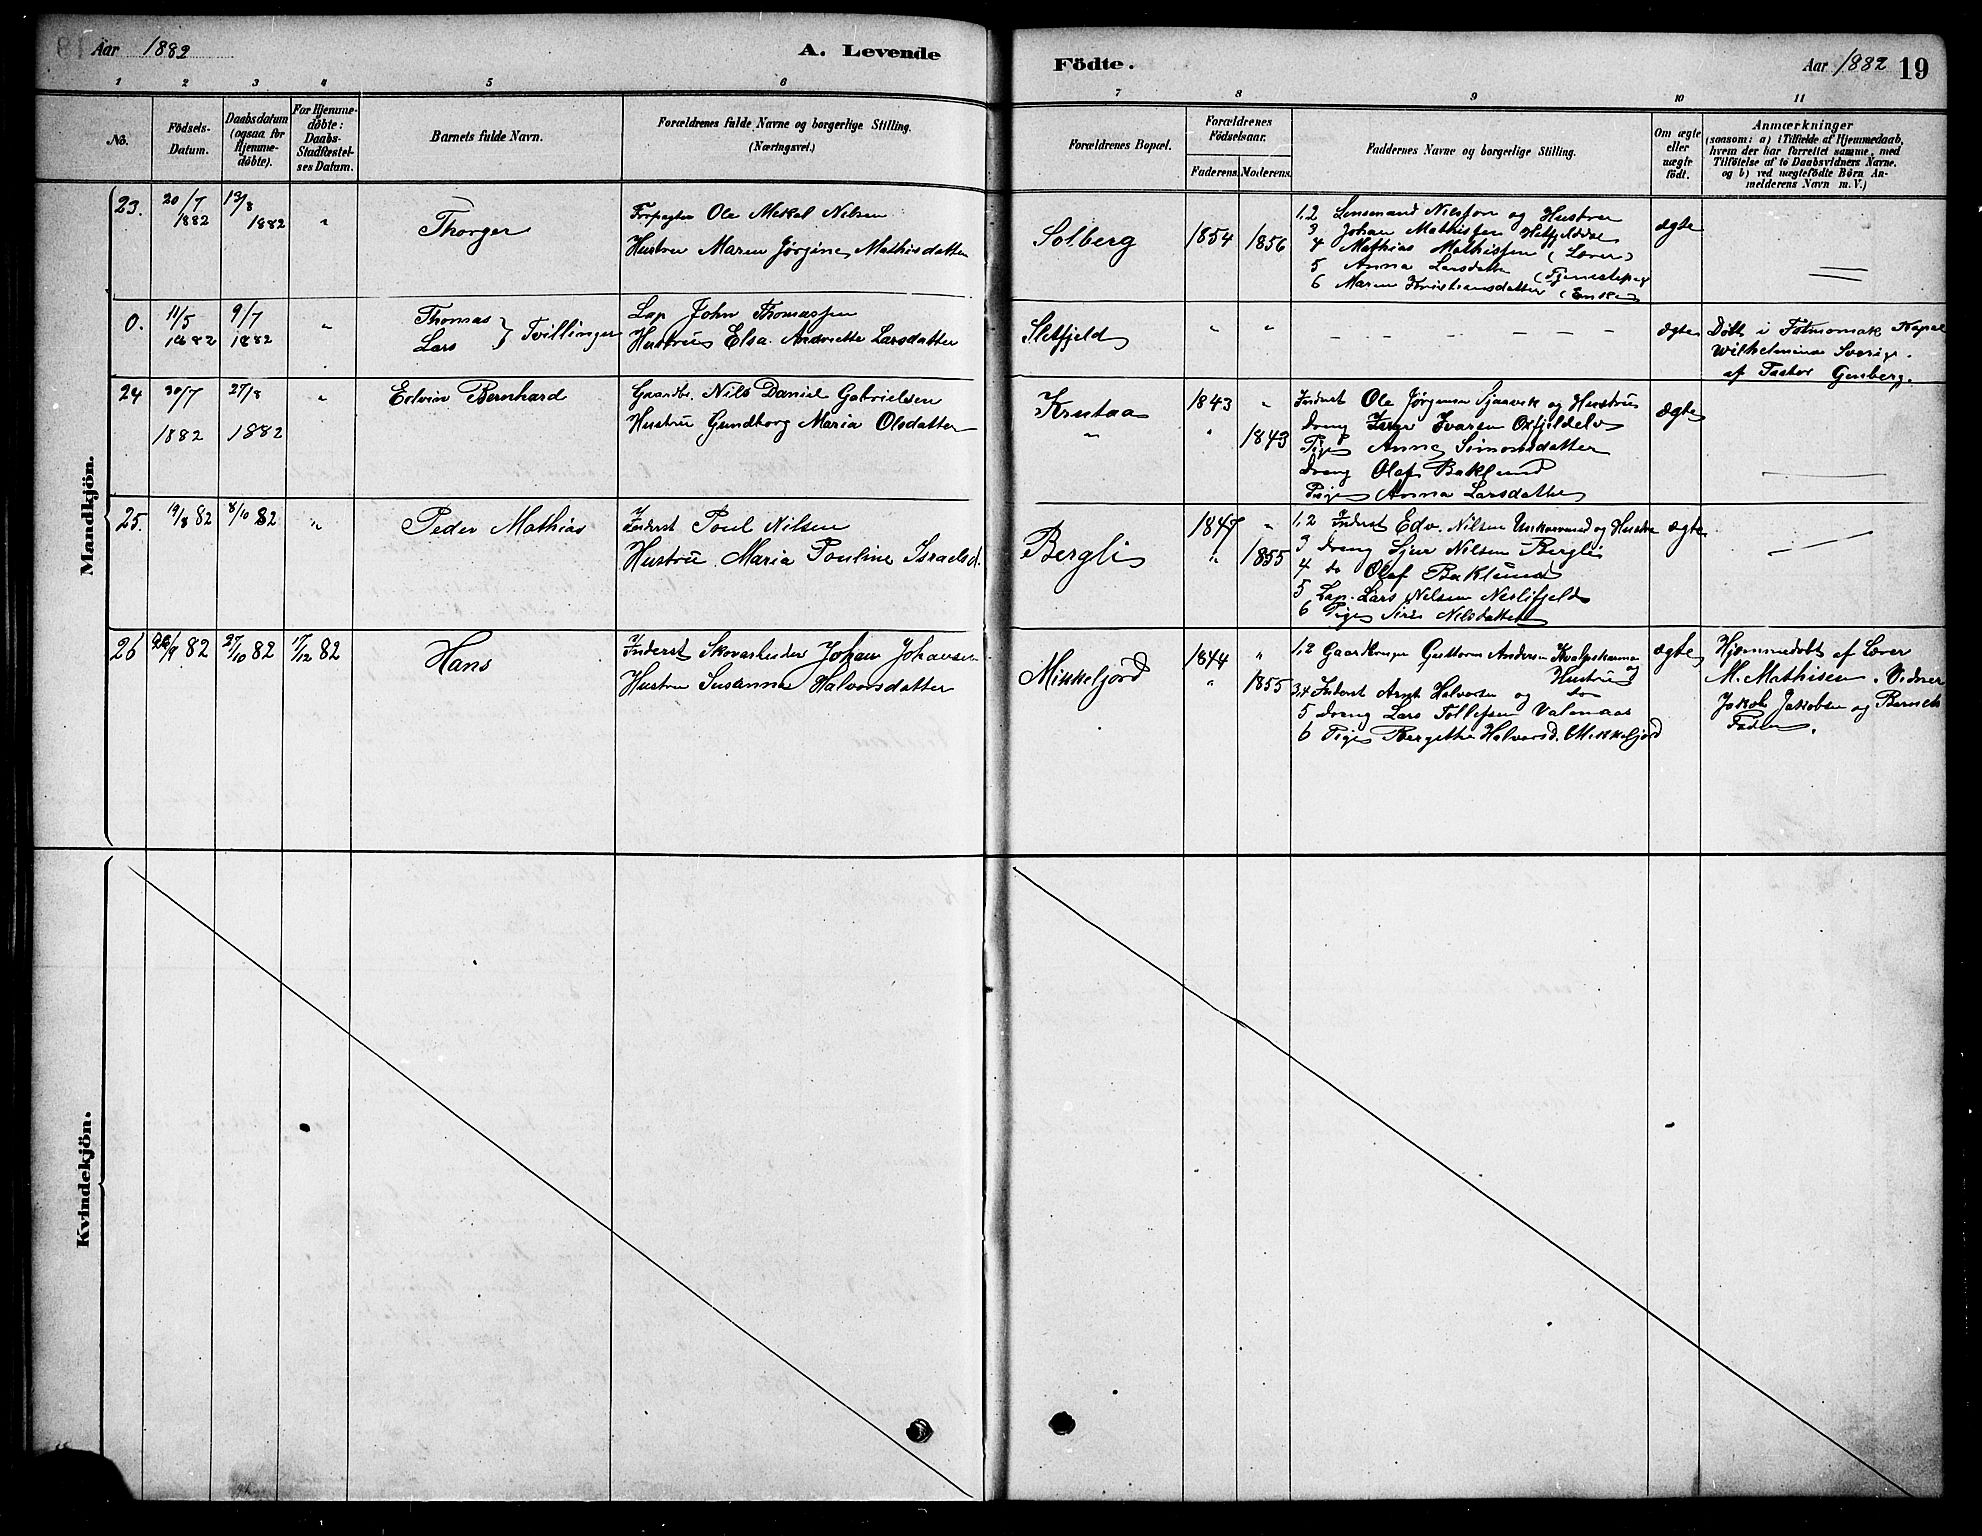 Aar 1882
A. Levende
Födte.
Aar 1882 19
1 2 3 4 5 6 7 8 9 10 11
No.
Födsels-
Datum.
Daabsdatum
(ogsaa for
Hjemme-
döbte).
For Hjemme-
döbte:
Daabs-
Stadfæstel-
ses Datum.
Barnets fulde Navn.
Forældrenes fulde Navne og borgerlige Stilling.
(Næringsvei.)
Forældrenes Bopæl.
Forældrenes
Födselsaar.
Faderens. Moderens.
Faddernes Navne og borgerlige Stilling.
Om ægte
eller
uægte
födt.
Anmærkninger
(saasom: a) i Tilfælde af Hjemmedaab,
hvem der har forrettet samme, med
Tilföielse af to Daabsvidners Navne,
og b) ved uægtefödte Börn An-
melderens Navn m. V.)
Mandkjön.
23.
20/7
1882
13/8
1882
"
Thorger
Forpagter Ole Mekal Nilsen
Hustru Maren Jørgine Mathisdatter
Solberg
1854 1856
1,2 Lensmand Nilsson og Hustru
3 Johan Mathissen
4 Mathias Mathissen (Lærer)
5 Anna Larsdatter (Tjenestepige
6 Maren Kristiansdatter (Enke)
ægte
0.
11/5
1882
9/7
1882
"
Thomas
Lars } Tvillinger
Lap John Thomassen
Hustru Elsa Andriette Larsdatter
Sletfjeld
" "
ægte
Döbt i Fatmomak Kapel
Wilhelmina Sverige.
af Pastor Genberg.
24
30/7
1882
27/8
1882
"
Edvin Bernhard
Gaardbr. Nils Daniel Gabrielsen
Hustru Gundborg Maria Olsdatter
Krutaa
"
1843 "
" 1843
Inderst Ole Jørgensen Sjaavik og Hustru
Dreng Ivarsen Oxfjeldelv
Pige Anna Simonsdatter
Dreng Olaf Baklund
Pige Anna Larsdatter
ægte
25.
19/8 82
8/10 82
"
Peder Mathias
Inderst Poul Nilsen
Hustru Maria Pouline Israelsd.
Bergli
1847 "
" 1855
1,2 Inderst Edv. Nilsen Unkervand og Hustru
3 Dreng Sjur Nilsen Bergli
4 do Olaf Baklund
5 Lap. Lars Nilsen Neslifjeld
6 Pige Siri Nilsdatter
ægte
26
/9 82
27/10 82
17/12 82
Hans
Inderst Skovarbeider Johan Johansen
Hustru Susanna Halvorsdatter
Mikkeljord
1844 "
" 1855
1,2 Gaardbruger Guttorm Andersen Kvalpskarmo og
Hustru
3,4 Inderst Arnt Halvorsen og do
5 Dreng Lars Tollefsen Valmaas
6 Pige Bergitha Halvorsd. Mikkeljord
ægte
Hjemmedöbt af Lærer
M. Mathisen. Vidner
Jakob Jakobsen og Barnets
Fader.
Kvindekjön.